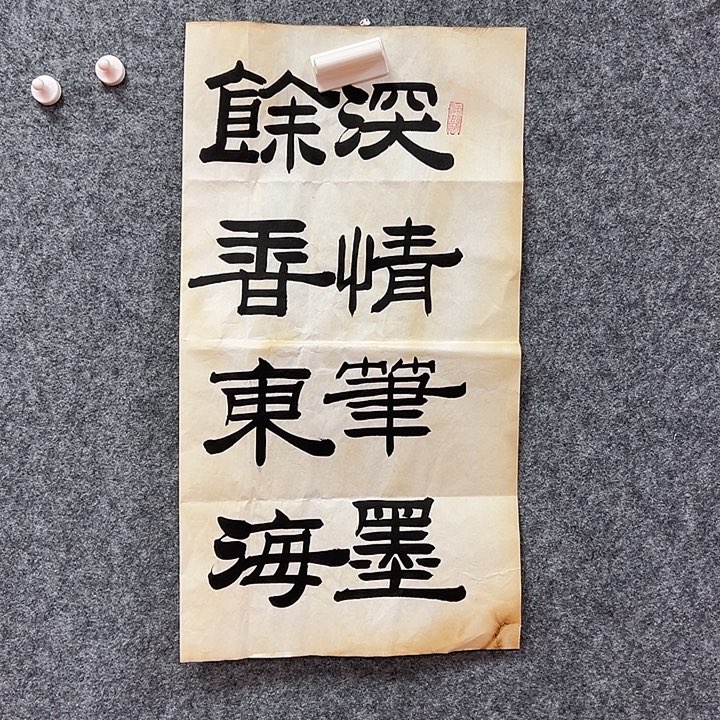 深情筆墨
餘香東海